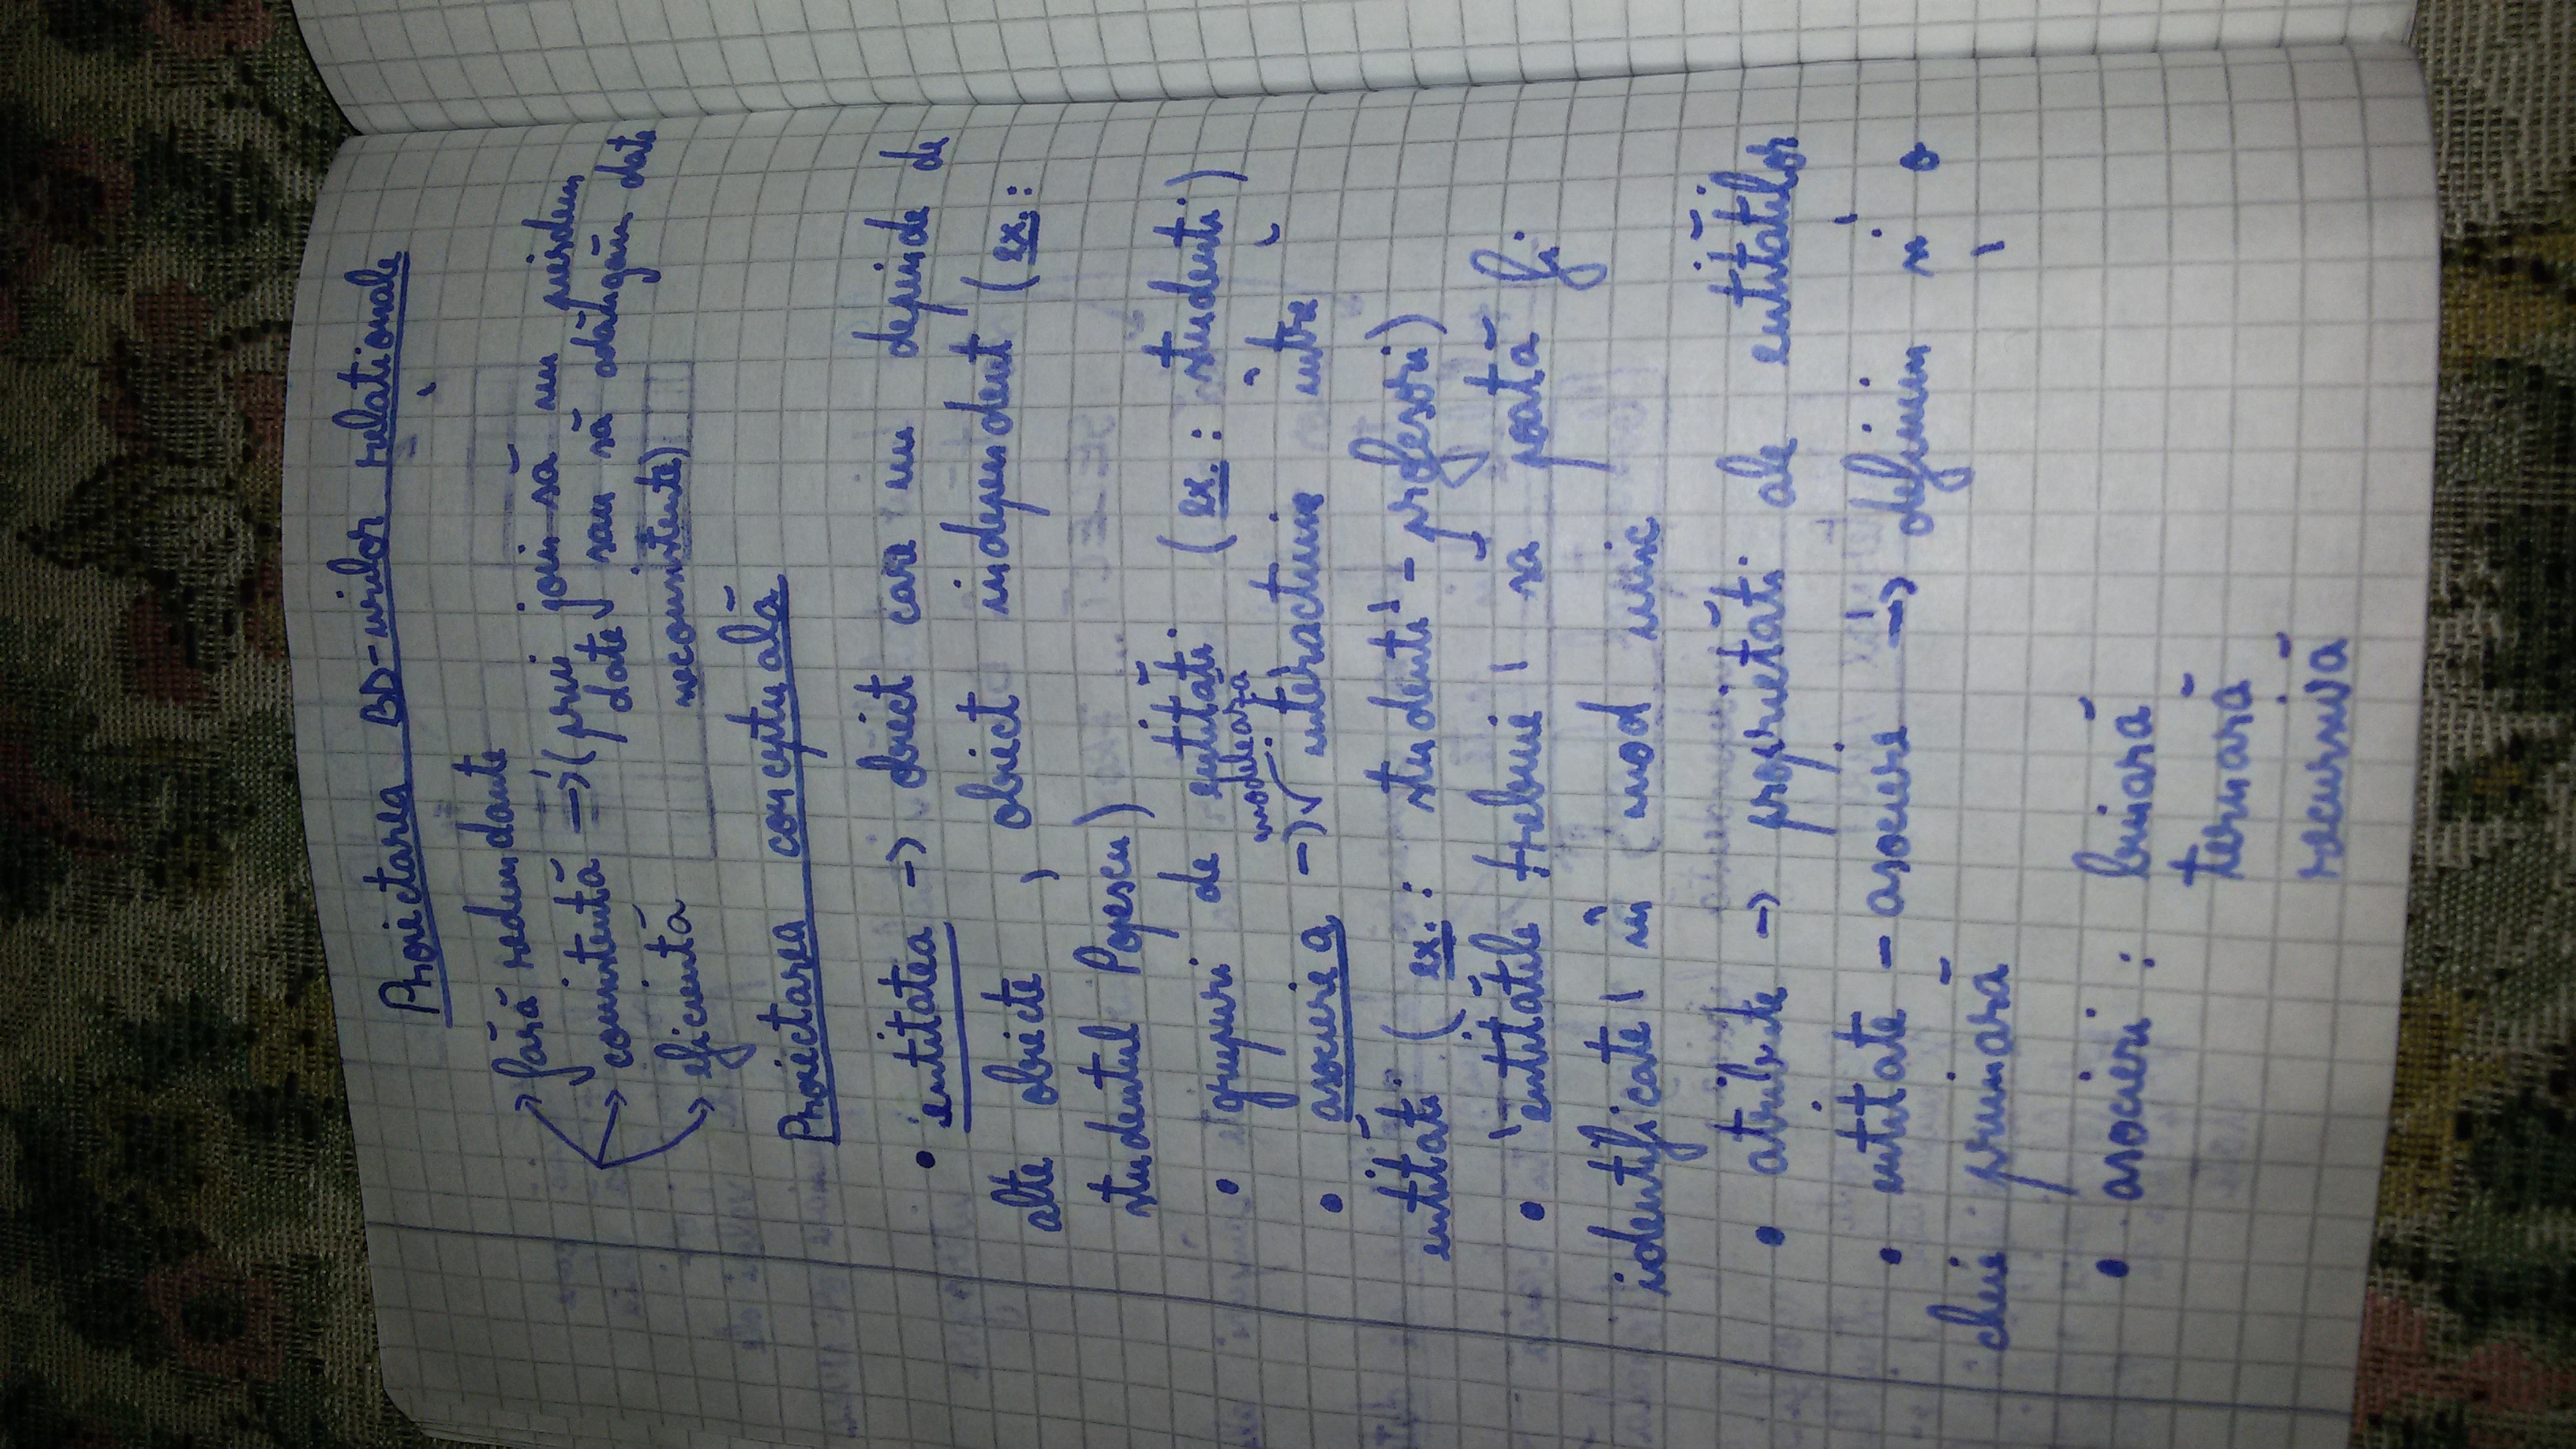 Proiectarea BD-urilor relaționale
fără redundanțe
consistență → (prin join să nu pierdem
date sau să adăugăm date
neconsistente)
eficiență
Proiectarea conceptuală
• entitatea → obiect care nu depinde de
alte obiecte, obiect independent (ex.:
studentul Popescu)
• grupuri de entități (ex.: studenți)
modelează
• asocierea → √ interacțiune între
entități (ex.: studenți - profesori)
• entitățile trebuie să poată fi
identificate în mod unic
• atribute → proprietăți ale entităților
• entitate - asociere → definim și o
cheie primară
• asocieri : binară
ternară
recursivă